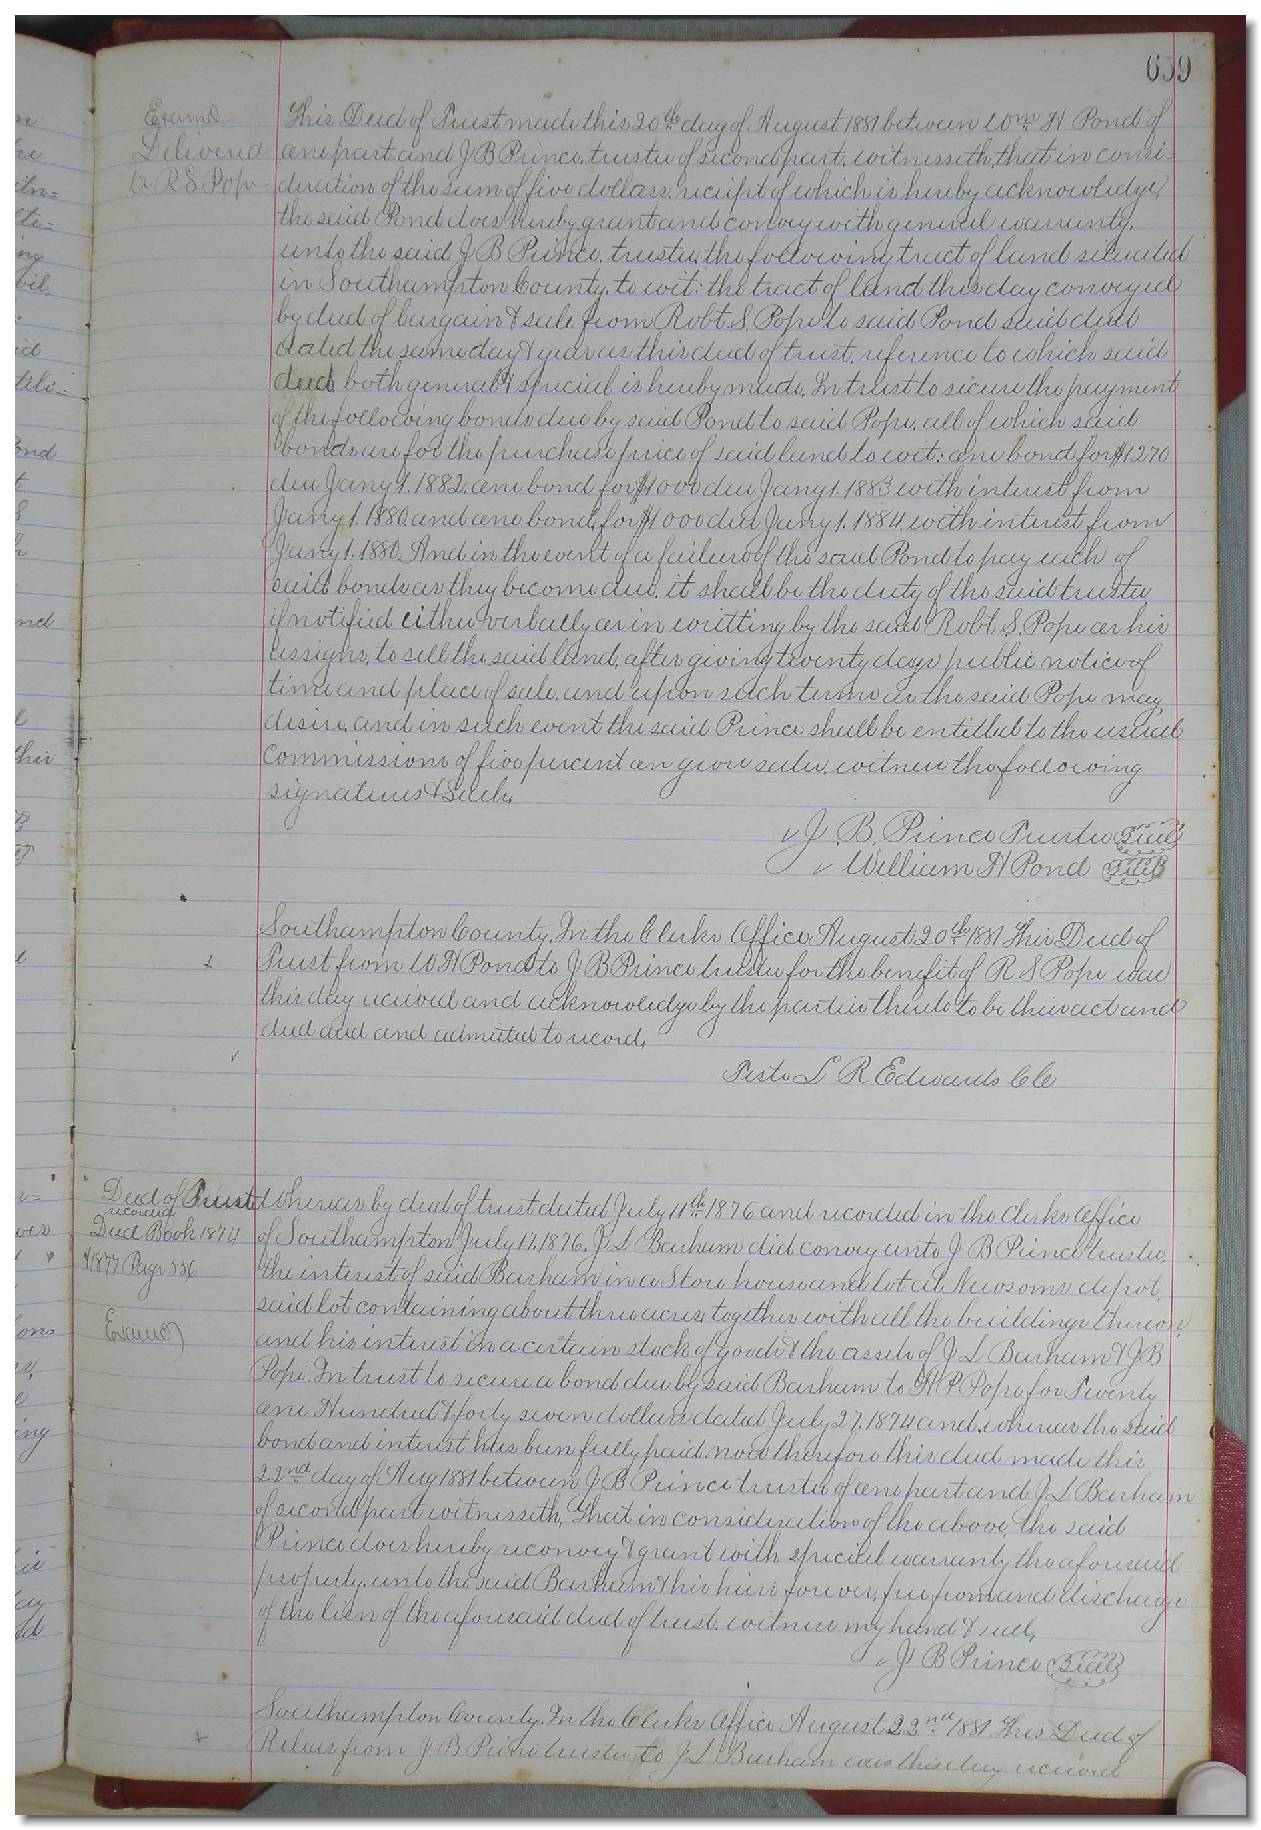 659
Examd
Delivered
to R S Pope
This Deed of Trust made this 20th day of August 1881 between Wm H Pond of
one part and J B Prince, trustee of second part, witnesseth, that in consi=
deration of the sum of five dollars, receipt of which is hereby acknowledge,
the said Pond does hereby grant and convey with general warranty,
unto the said J B Prince, trustee, the following tract of land situated
in Southampton County, to wit: the tract of land this day conveyed
by deed of bargain & sale from Robt. S. Pope to said Pond said deed
dated the same day & year as this deed of trust, reference to which said
deed, both general & special is hereby made. In trust to secure the payment
of the following bonds due by said Pond to said Pope, all of which said
bonds are for the purchase price of said land to wit: one bond for $1270
due Jany 1. 1882, one bond for $1000 due Jany 1. 1883 with interest from
Jany 1. 1880, and one bond, for $1000 due Jany 1. 1884 with interest from
Jany 1. 1880. And in the event of a failure of the said Pond to pay each of
said bonds as they become due, it shall be the duty of the said trustee
if notified either verbally or in writting by the said Robt. S. Pope or his
assigns, to sell the said land, after giving twenty days public notice of
time and place of sale, and upon such terms as the said Pope may
desire, and in such event the said Prince shall be entitled to the usual
commissions of five percent on gross sales, witness the following
signatures & Seals,
J. B. Prince Trustee Seal
William H Pond Seal
Southampton County, In the Clerks Office August 20th 1881 This Deed of
Trust from W H Pond to J B Prince trustee for the benefit of R S Pope was
this day received and acknowledge by the parties thereto to be their act and
deed and and admitted to record,
Teste L R Edwards Clk
Deed of Trust
recorded
Deed Book 1874
& 1877 Page 336
Examd
Whereas by deed of trust dated July 11th 1876 and recorded in the Clerks Office
of Southampton July 17, 1876, J L Barham did convey unto J B Prince trustee,
the interest of said Barham in a Store house and lot at Newsoms depot,
said lot containing about three acres, together with all the buildings thereon,
and his interest in a certain stock of goods & the assets of J L Barham & J B
Pope. In trust to secure a bond due by said Barham to H P Pope for Twenty
one Hundred & forty seven dollars dated July 27, 1874 and whereas the said
bond and interest has been fully paid, now therefore this deed made this
22nd day of Aug 1881 between J B Prince trustee of one part and J L Barham
of second part witnesseth, That in consideration of the above, the said
Prince does hereby reconvey & grant with special warranty the aforesaid
property, unto the said Barham & his heirs forever, free from and discharge
of the lien of the aforesaid deed of trust. witness my hand & seal,
J B Prince Seal
Southampton County. In the Clerks Office August 22nd 1881 This Deed of
Release from J B Prince trustee to J L Barham was this day received